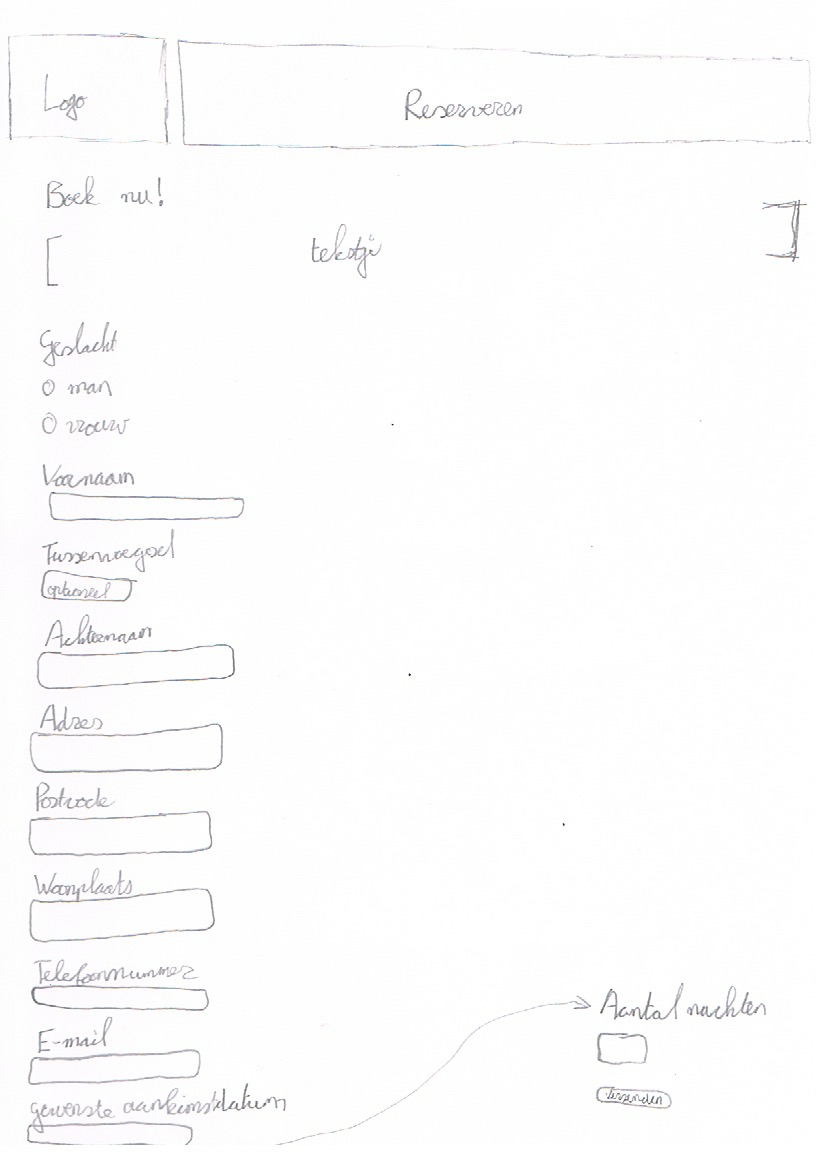 Logo
Reserveren
Boek nu!
tekstje
Geslacht
O man
O vrouw
Voornaam
Tussenvoegsel
optioneel
Achternaam
Adres
Postcode
Woonplaats
Telefoonnummer
E-mail
gewenste aankomstdatum
Aantal nachten
Verzenden